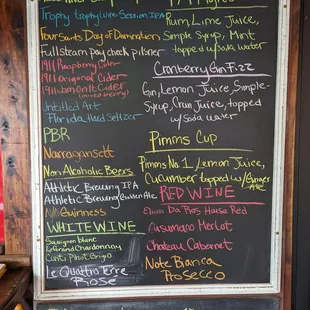 Trophy Wife Session IPA
Four Saints Day of Damnation
Full Steam pay check pilsner
1911 Raspberry Cider
1911 Original Cider
Untitled Art
Florida Hard Seltzer
PBR
Narragansett
Non Alcoholic Beers
Athletic Brewing IPA
Athletic Brewing Golden Ale
N/A Guinness
WHITE WINE
Sauvignon blanc
Grand Chardonnay
Conti Pinot Grigo
Le Quattro Terre
Rose
Rum, Lime Juice,
Simple Syrup, Mint
topped w/ soda water
Cranberry Gin Fizz
Gin, Lemon Juice, Simple-
Syrup, Cran Juice, topped
w/ Soda water
Pimms Cup
Pimms No. 1, Lemon Juice,
Cucumber topped w/ Ginger
Ale
RED WINE
House Red
Casumaro Merlot
Chateau Cabernet
Note Bianca
Prosecco